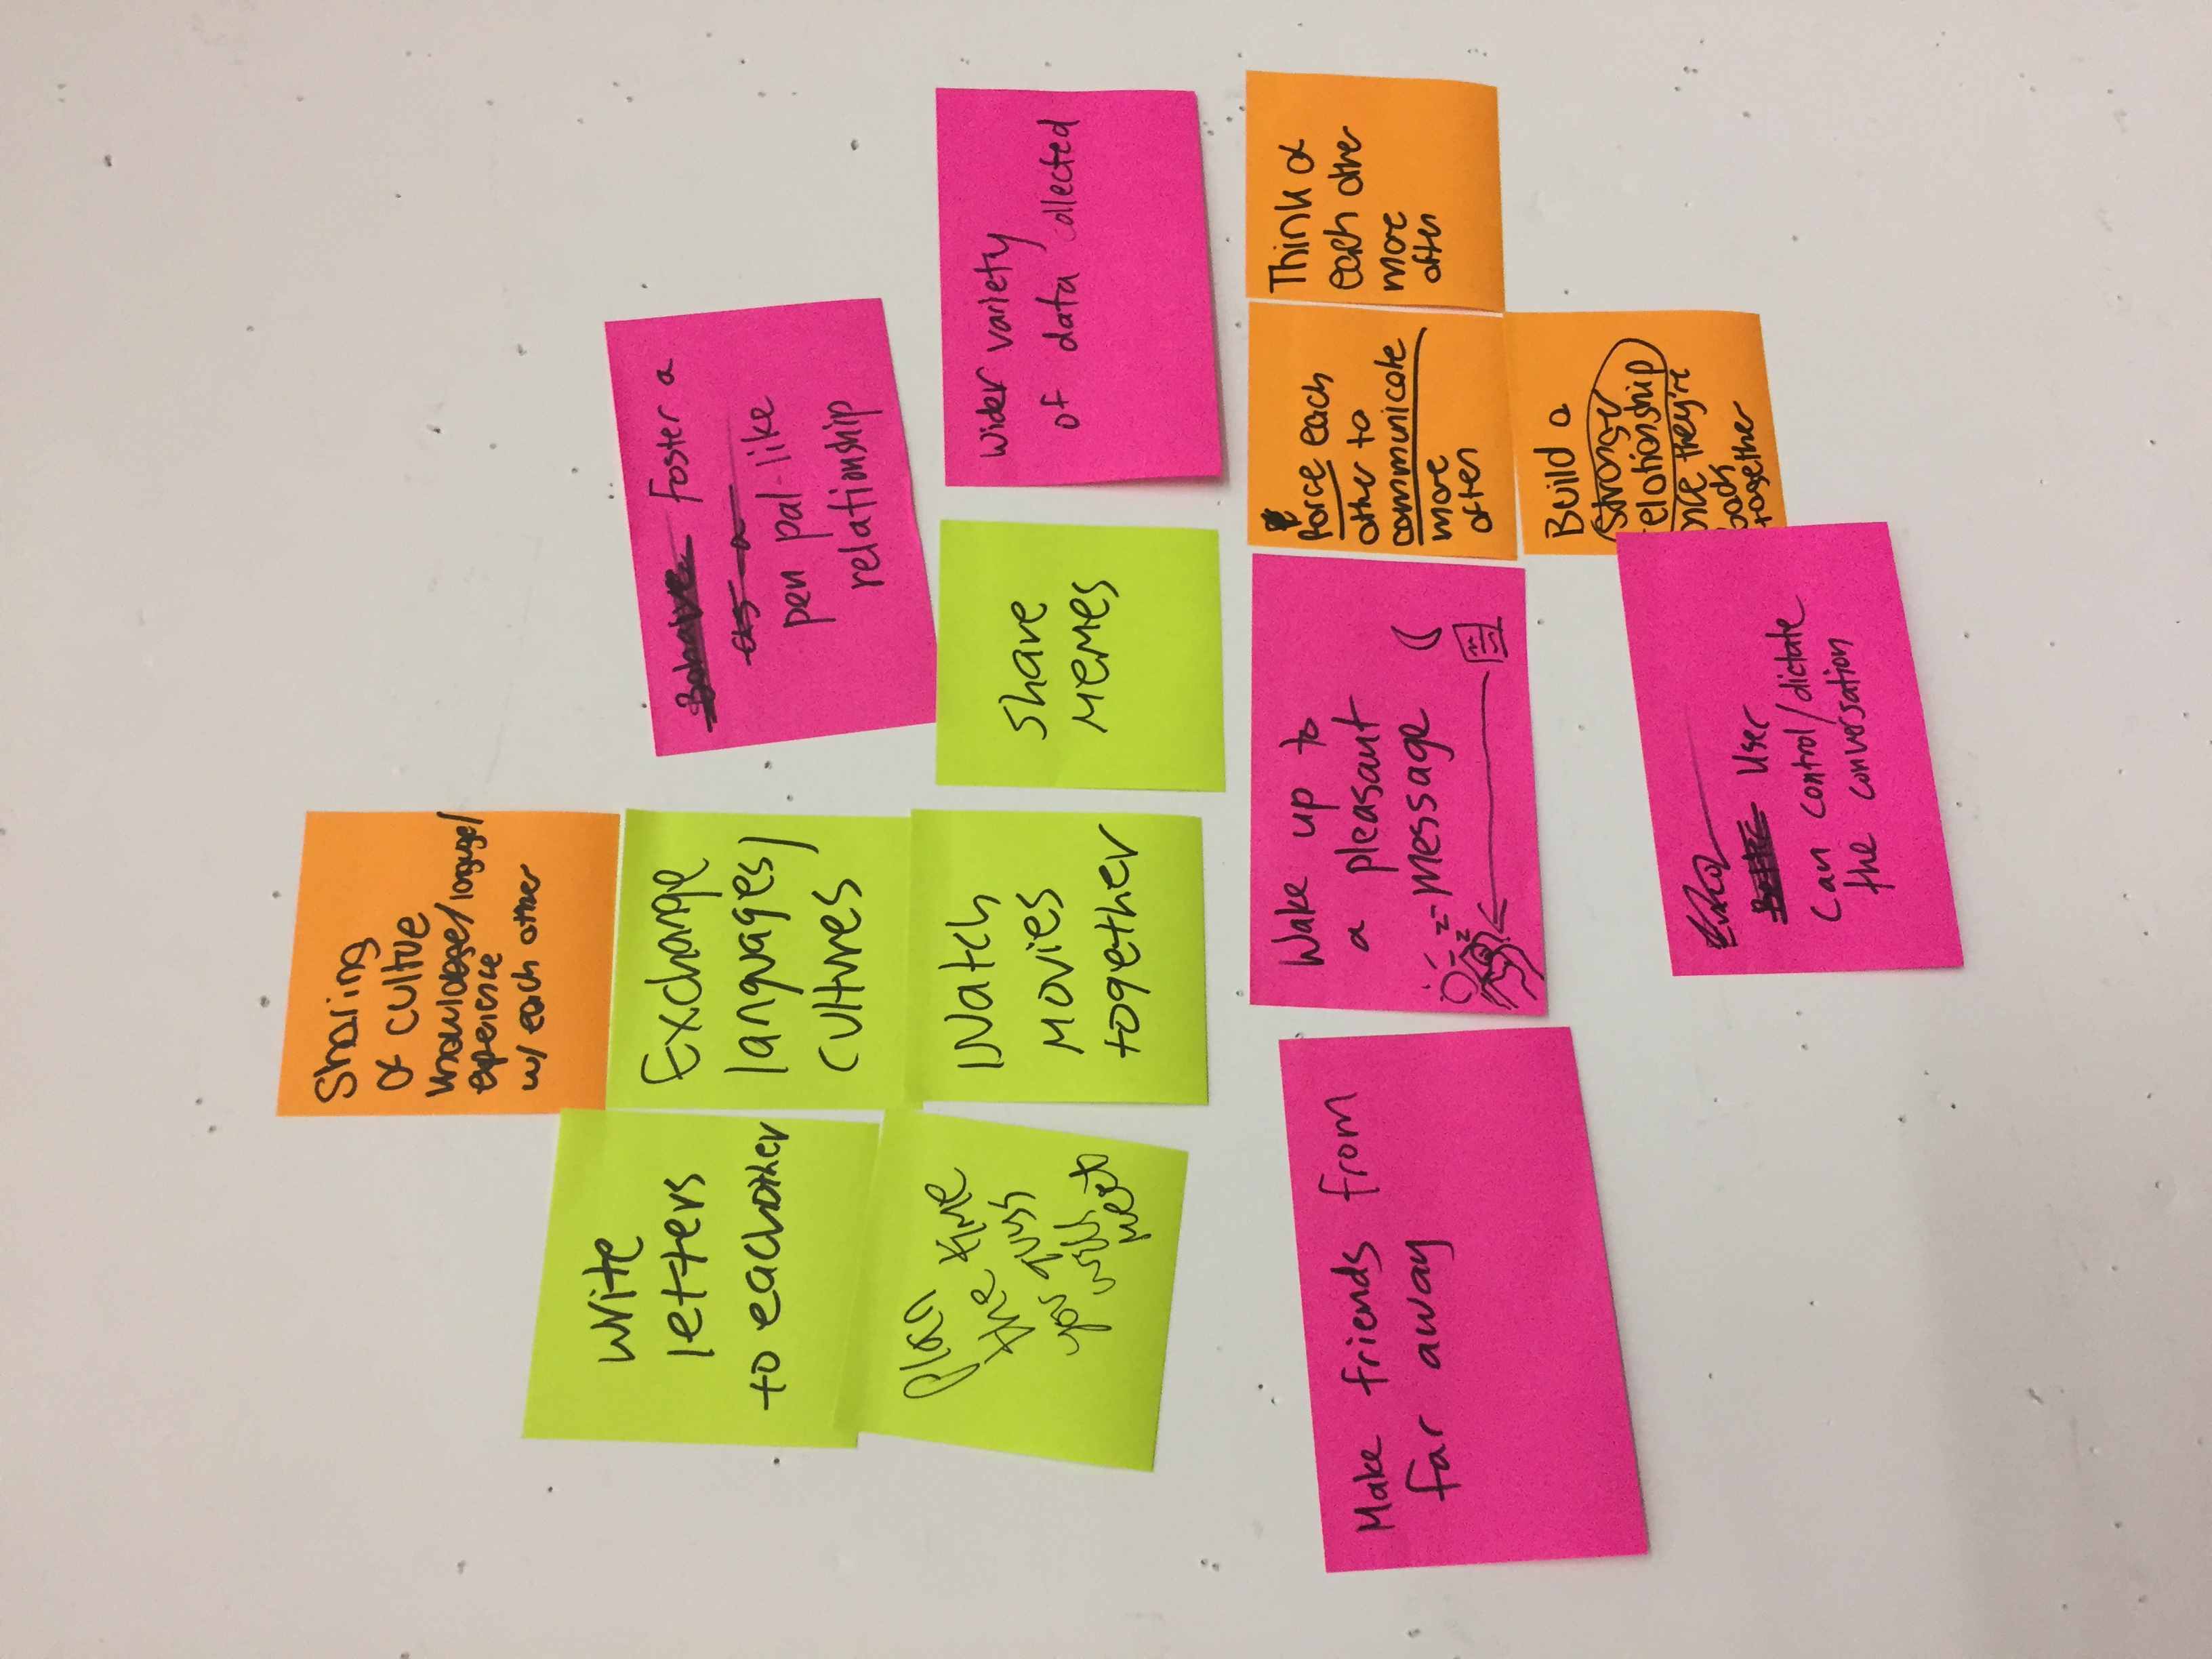 Sharing
of cultue
knowledge/language/
experience
w/ each other
Write
letters
to eachother
Exchange
languages,
cultures
Behave Foster a
as a
pen pal-like
relationship
Plan
the time
you guys
will
meet
Watch
movies
together
Share
memes
Wider variety
of data collected
Make friends from
far away
Wake up to
a pleasant
message
z z
Force each
other to
communicate
more
often
Think of
each other
more
often
Build a
stronger
relationship
once they're
back
together
Better User
Can control/dictate
the conversation